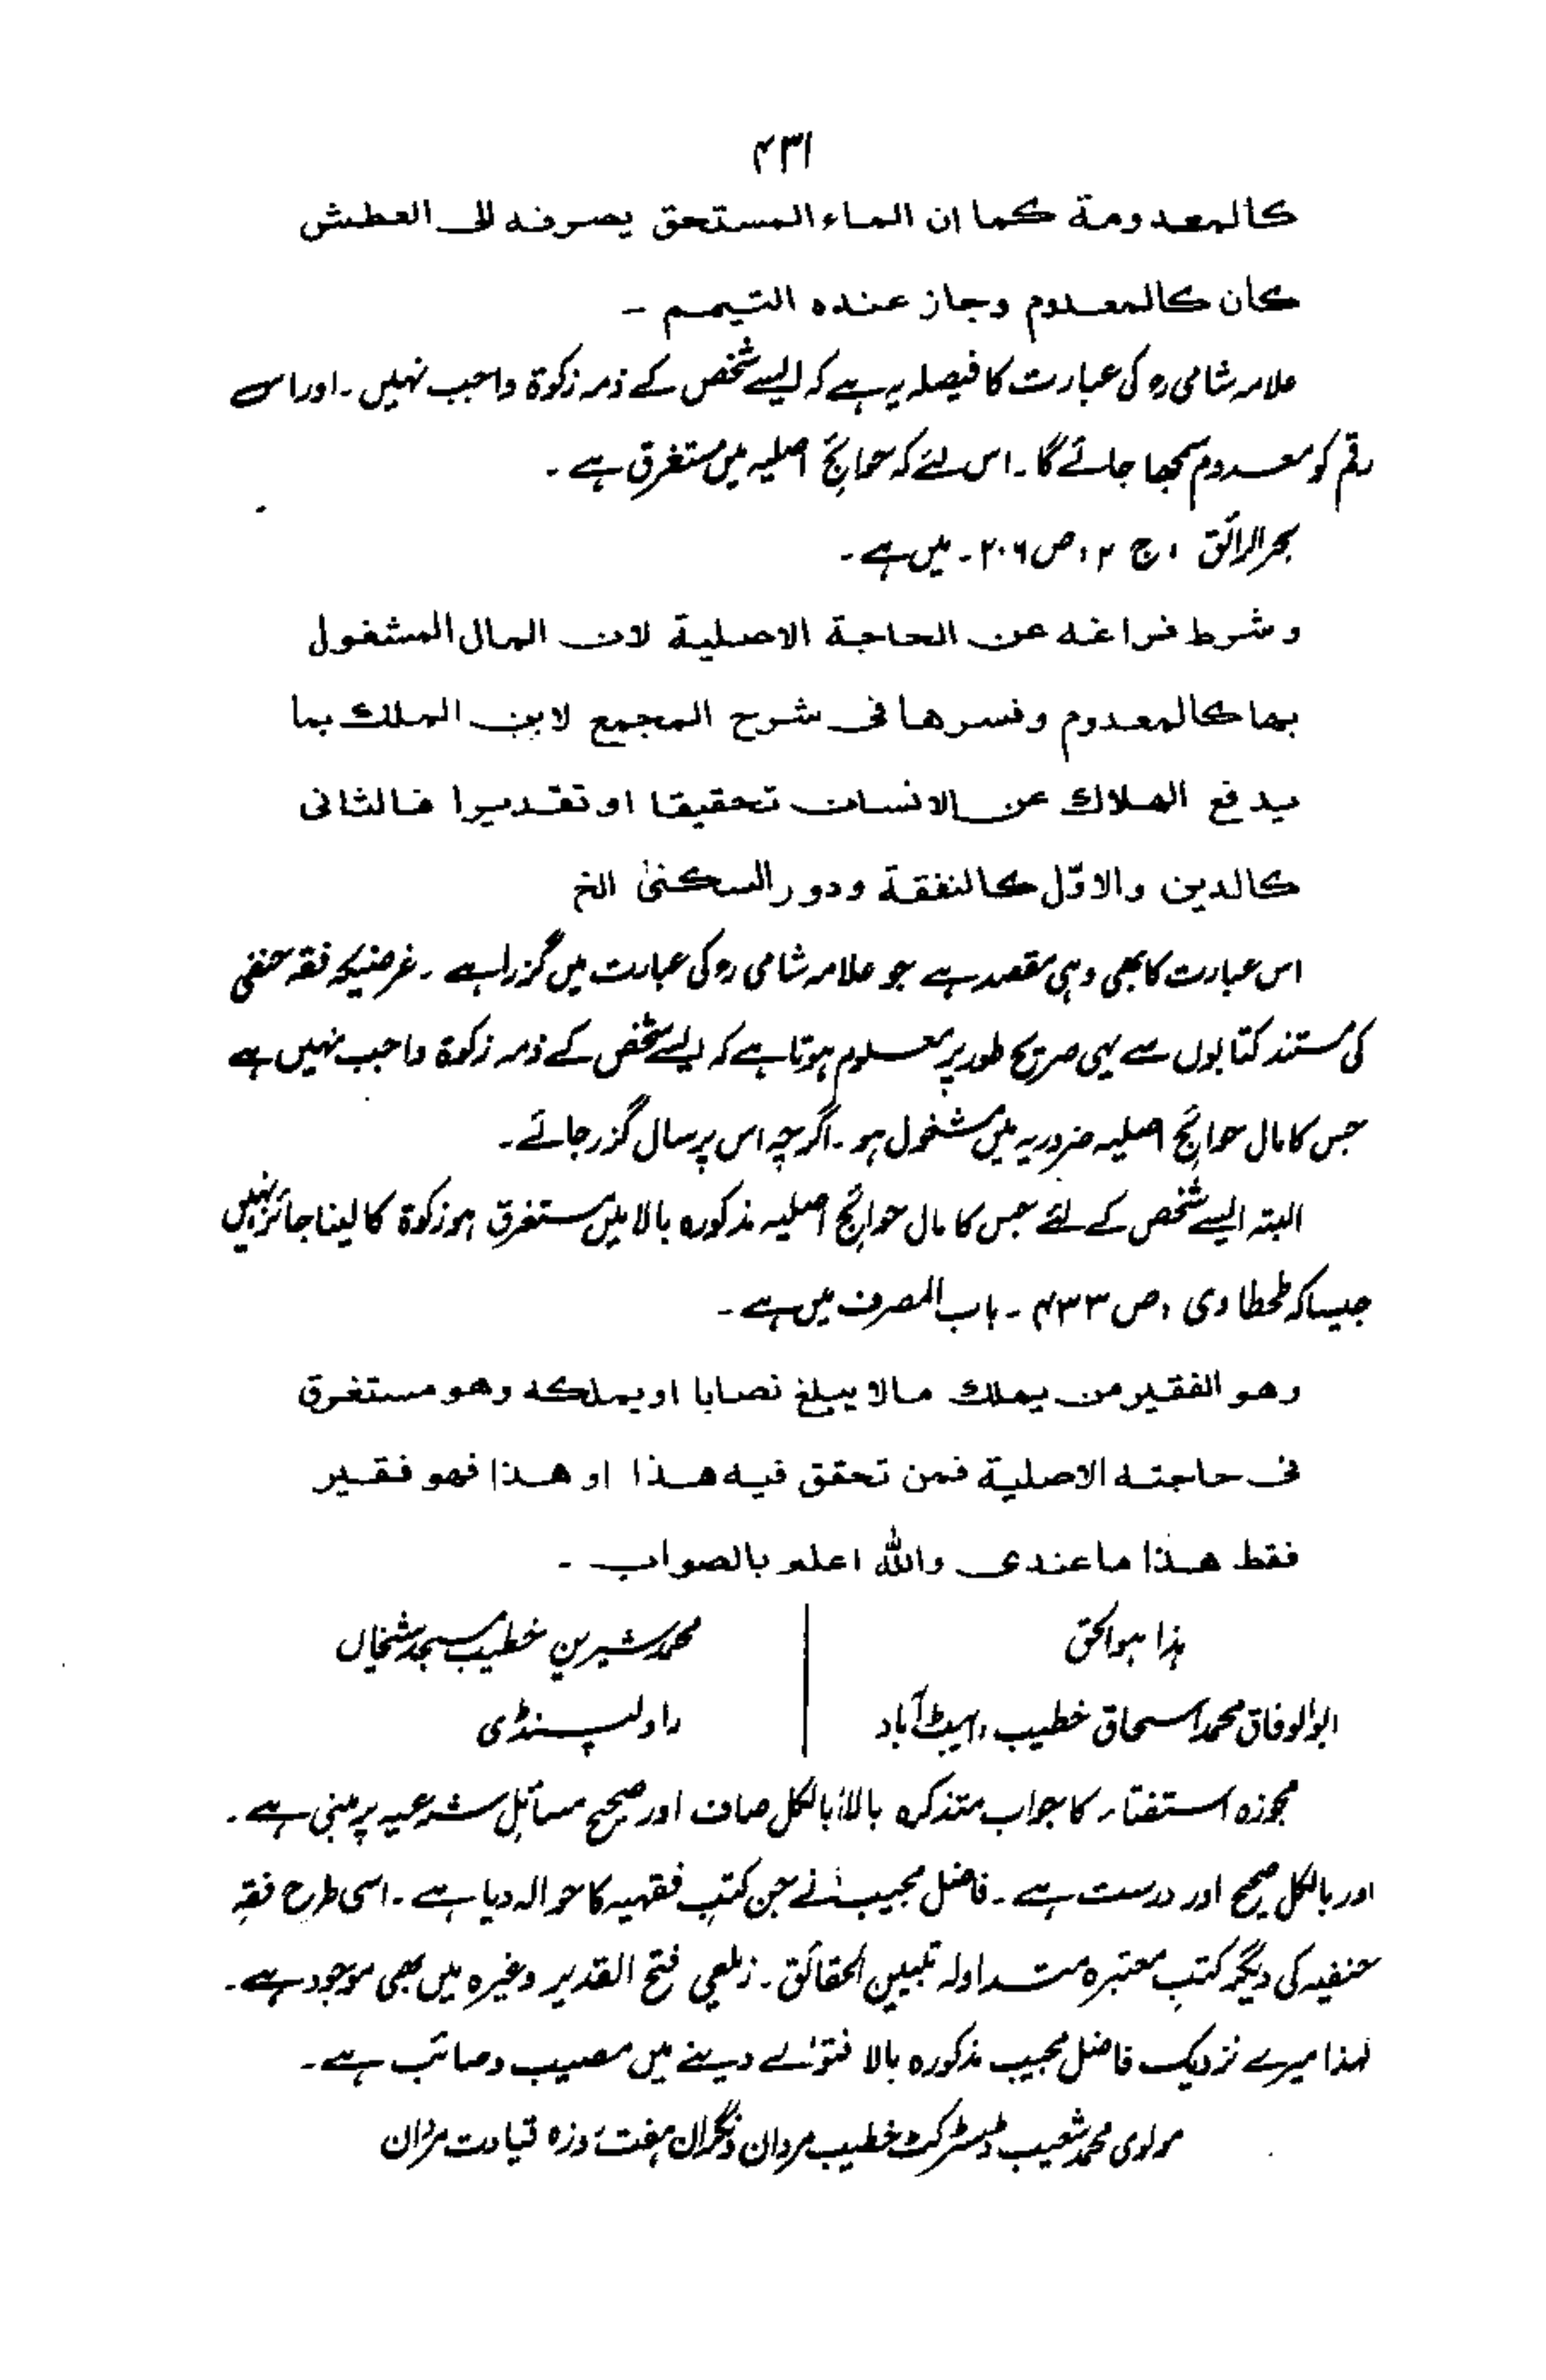 ۴۳۱
كالمعدومة كما ان الماء المستحق يصرفه الى العطش
كان كالمعدوم وجاز عنده التيمم -
علامہ شامی رہ کی عبارت کا فیصلہ یہ ہے کہ ایسے شخص کے ذمہ زکوٰۃ واجب نہیں ۔ اور اس
رقم کو معدوم سمجھا جائے گا ۔ اس لئے کہ حوائج اصلیہ میں مستغرق ہے ۔
بحر الرائق ، ج ۲ ، ص ۲۰۶ ۔ میں ہے ۔
وشرط فراغه عن الحاجة الاصلية لان المال المشغول
بها كالمعدوم وفسرها فى شرح المجمع لابن الملك بما
يدفع الهلاك عن الانسان تحقيقا او تقديرا فالثانى
كالدين والاوّل كالنفقة ودور السكنىٰ الخ
اس عبارت کا بھی وہی مقصد ہے جو علامہ شامی رہ کی عبارت میں گزرا ہے ۔ غرضیکہ فقہ حنفی
کی مستند کتابوں سے یہی صریح طور پر معلوم ہوتا ہے کہ ایسے شخص کے ذمہ زکوٰۃ واجب نہیں ہے
جس کا مال حوائج اصلیہ ضروریہ میں مشغول ہو ۔ اگرچہ اس پر سال گزر جائے ۔
البتہ ایسے شخص کے لئے جس کا مال حوائج اصلیہ مذکورہ بالا میں مستغرق ہو زکوٰۃ کا لینا جائز نہیں
جیسا کہ طحطاوی ، ص ۴۳۳ ۔ باب المصرف میں ہے ۔
وهو الفقير من يملك مالا يبلغ نصابا او يملكه وهو مستغرق
فى حاجته الاصلية فمن تحقق فيه هذا او هذا فهو فقير
فقط هذا ما عندى والله اعلم بالصواب -
ہذا ہوالحق
محمد شیریں خطیب مسجد
ابوالوفاق محمد اسحاق خطیب ، ایبٹ آباد
راولپنڈی
مجوزہ استفتاء کا جواب متذکرہ بالا بالکل صاف اور صحیح مسائل شرعیہ پر مبنی ہے ۔
اور بالکل صحیح اور درست ہے ۔ فاضل مجیب نے جن کتب فقہیہ کا حوالہ دیا ہے ۔ اسی طرح فقہ
حنفیہ کی دیگر کتب معتبرہ متداولہ تبیین الحقائق ۔ زیلعی فتح القدیر وغیرہ میں بھی موجود ہے ۔
لہٰذا میرے نزدیک فاضل مجیب مذکورہ بالا فتوٰے دینے میں مصیب و صائب ہے ۔
مولوی محمد شعیب ڈسٹرکٹ خطیب مردان و نگران ہفت روزہ قیادت مردان